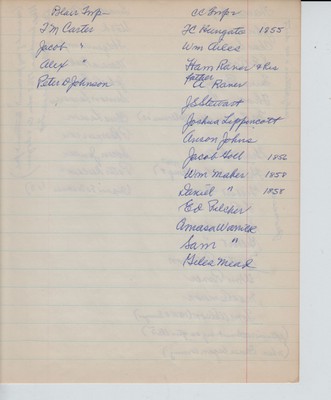 Blair Twp
T M Carter
Jacob "
Alex "
Peter D Johnson
CC Twps
TC Hungate 1855
Wm Aules
Ham Raner & his
father
A Raner
J E Stewart
Joshua Lippincott
Anson Johns
Jacob Goll 1856
Wm Maher 1858
Daniel " 1858
Ed Pilcher
Amiasa Warrick
Sam "
Giles Mead